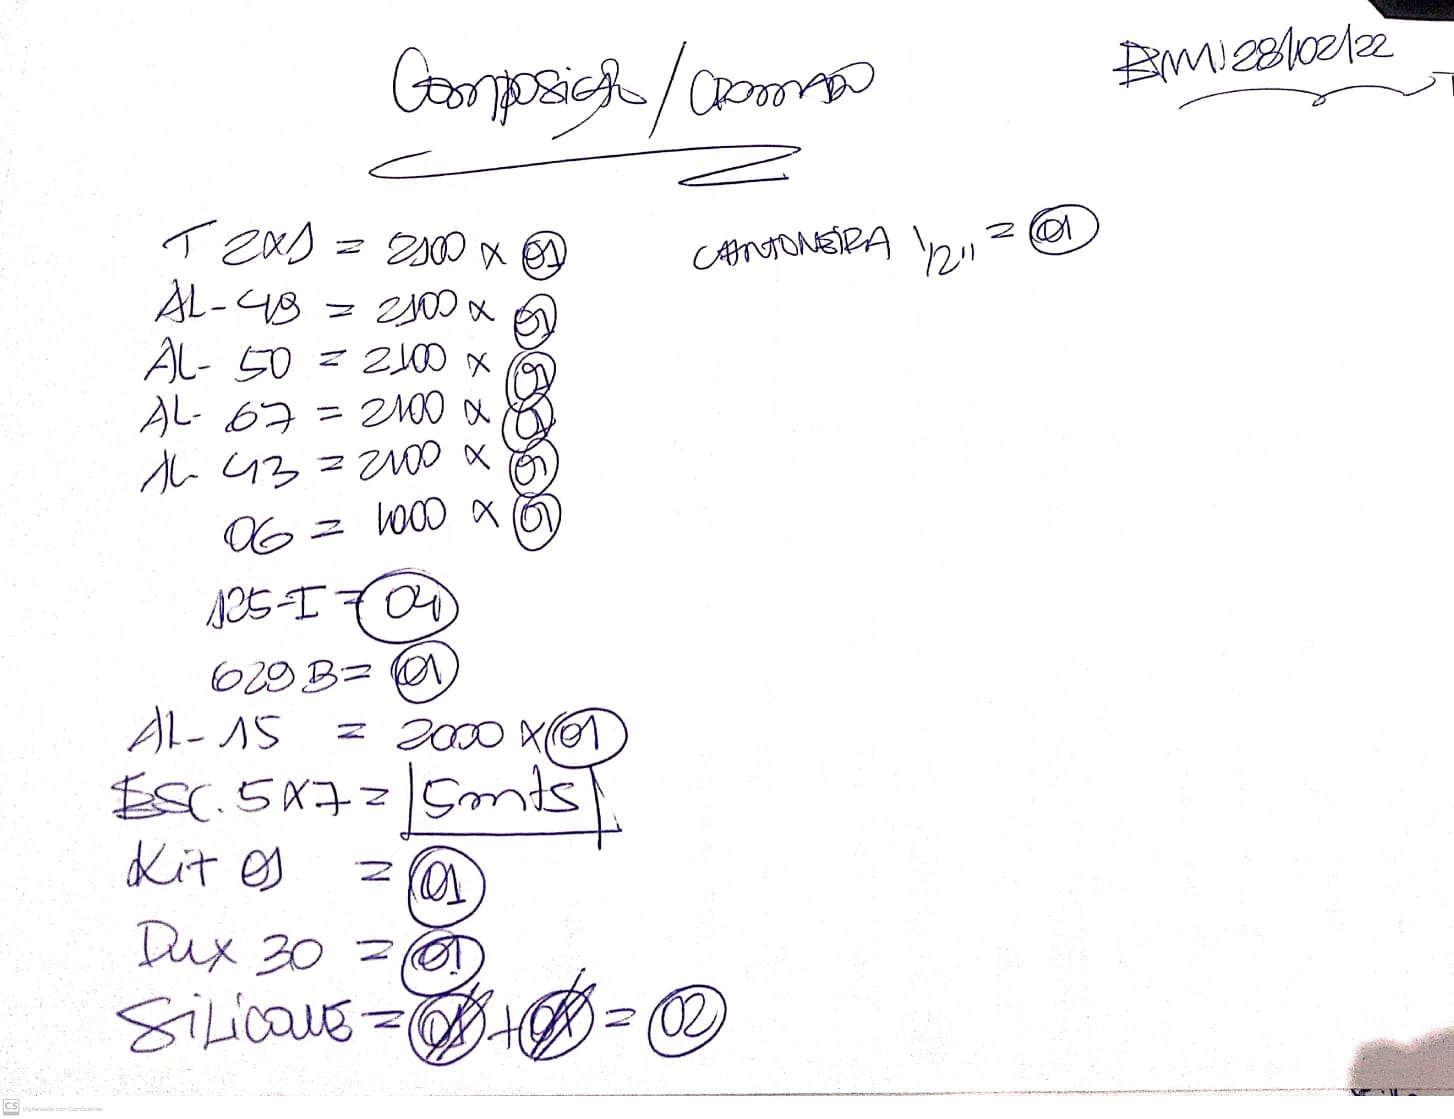 Composição / CROMADO
BM 28/02/22
T 2X1 = 2100 X 01
CANTONEIRA 1/2" = 01
AL-48 = 2100 X 01
AL- 50 = 2100 X 01
AL- 67 = 2100 X 01
AL- 43 = 2100 X 01
06 = 1000 X 01
125-I = 04
629 B = 01
AL- 15 = 2000 X 01
ESC. 5X7 = 5mts
Kit 01 = 01
Dux 30 = 01
SILICONE = 01 + 01 = 02
CS Digitalizado com CamScanner